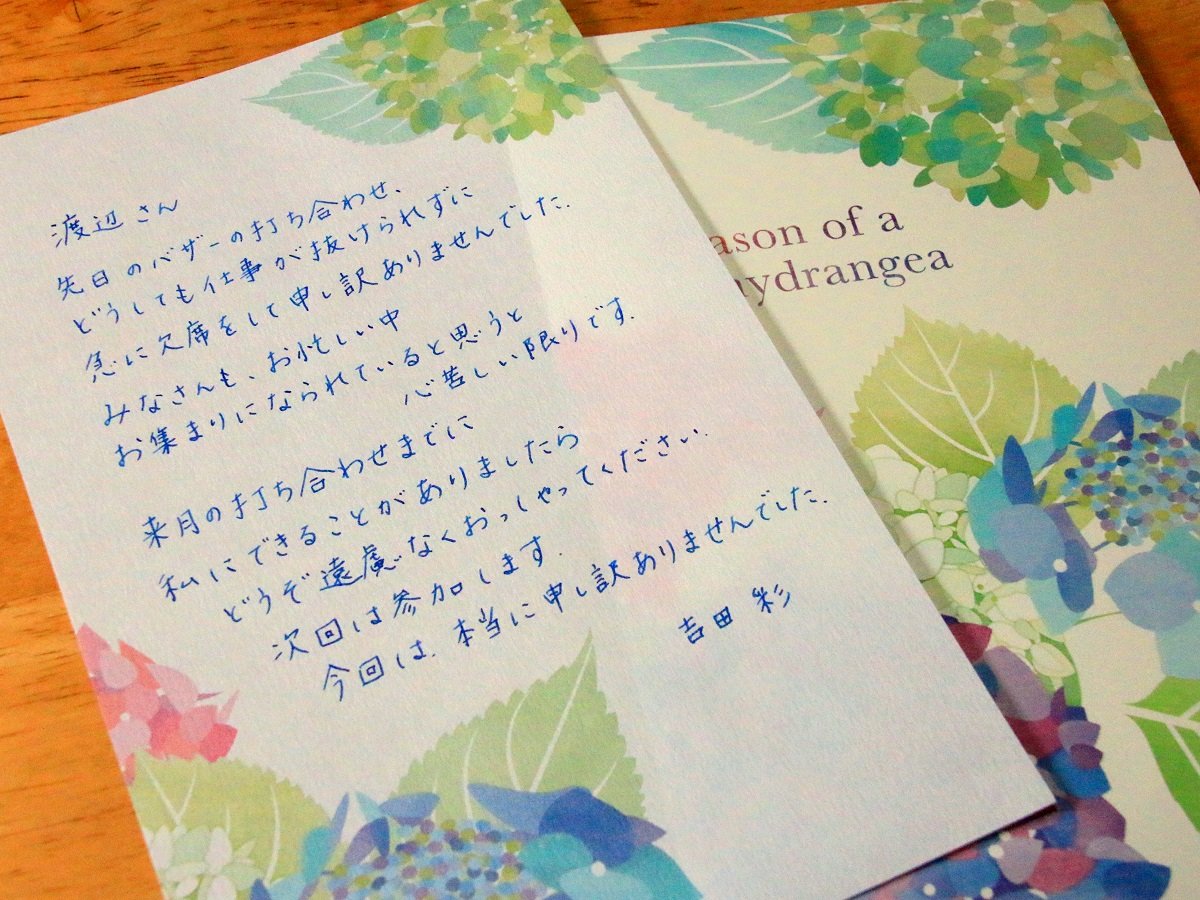 渡辺さん
先日のバザーの打ち合わせ、
どうしても仕事が抜けられずに
急に欠席をして申し訳ありませんでした.
みなさんも、お忙しい中
お集まりになられていると思うと
心苦しい限りです.
来月の打ち合わせまでに
私にできることがありましたら
どうぞ遠慮なくおっしゃってください.
次回は参加します.
今回は、本当に申し訳ありませんでした.
吉田 彩
ason of a
ydrangea